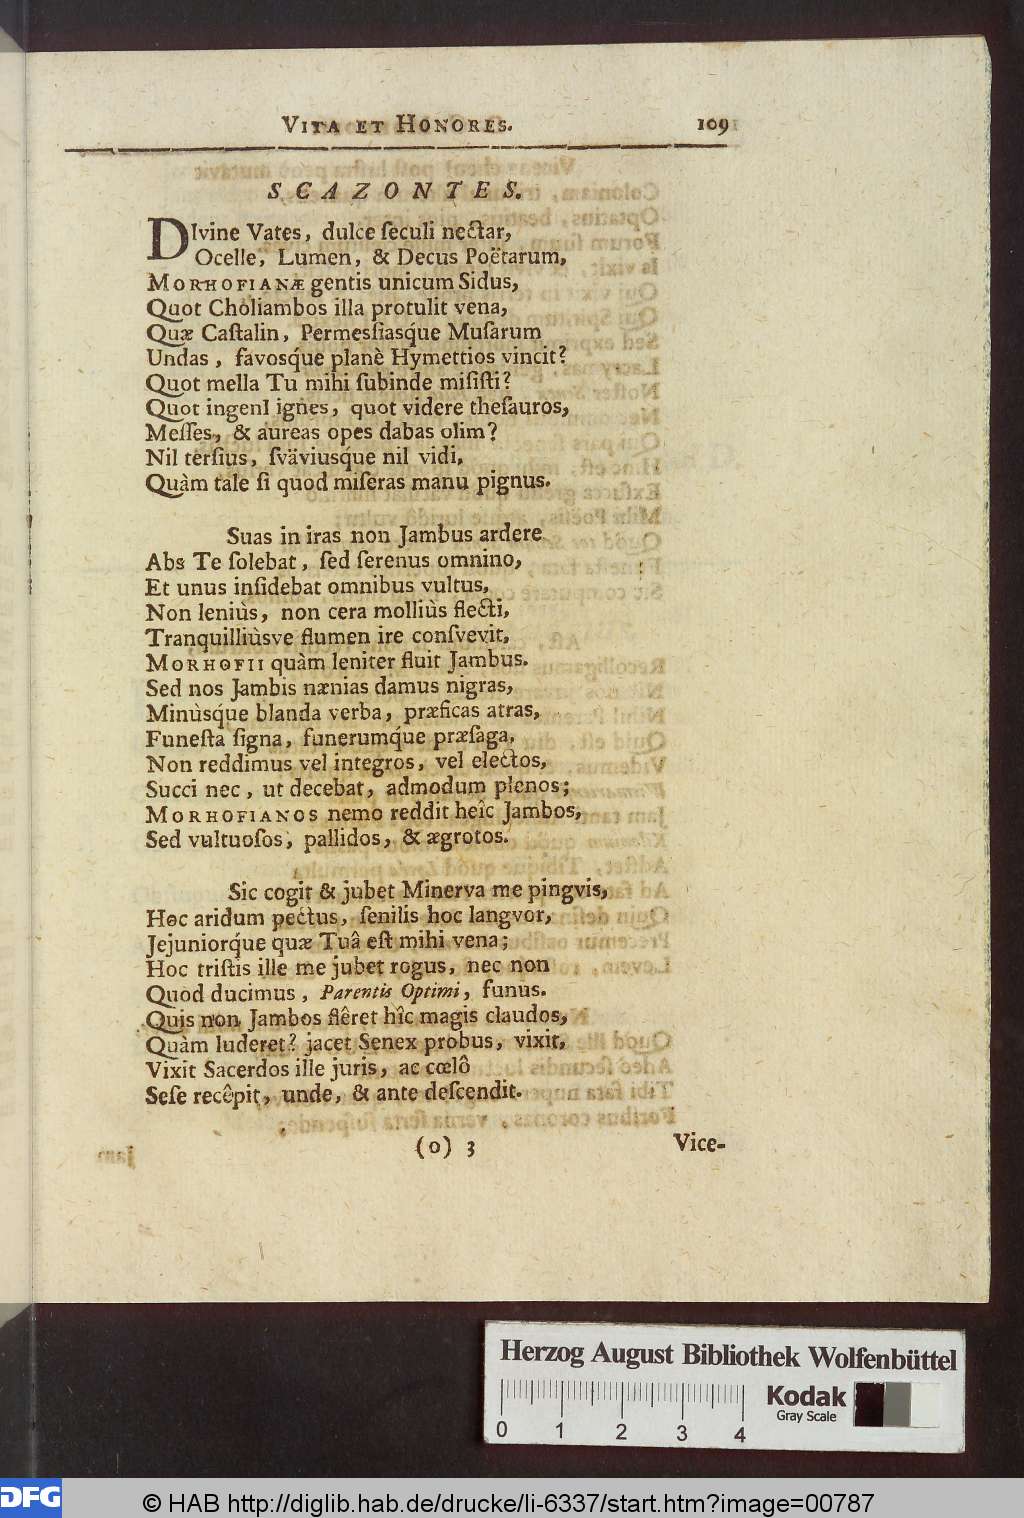 VITA ET HONORES. 109
SCAZONTES.
DIvine Vates, dulce ſeculi nectar,
Ocelle, Lumen, & Decus Poëtarum,
MORHOFIANÆ gentis unicum Sidus,
Quot Choliambos illa protulit vena,
Quæ Caſtalin, Permesſiasq́ue Muſarum
Undas, favosq́ue planè Hymettios vincit?
Quot mella Tu mihi ſubinde miſiſti?
Quot ingenI ignes, quot videre theſauros,
Meſſes, & aureas opes dabas olim?
Nil terſius, ſväviusq́ue nil vidi,
Quàm tale ſi quod miſeras manu pignus.
Suas in iras non Jambus ardere
Abs Te ſolebat, ſed ſerenus omnino,
Et unus inſidebat omnibus vultus,
Non leniùs, non cera molliùs flecti,
Tranquilliùsve flumen ire conſvevit,
MORHOFII quàm leniter fluit Jambus.
Sed nos Jambis nænias damus nigras,
Minùsq́ue blanda verba, præficas atras,
Funeſta ſigna, funerumq́ue præſaga,
Non reddimus vel integros, vel electos,
Succi nec, ut decebat, admodum plenos;
MORHOFIANOS nemo reddit heîc Jambos,
Sed vultuoſos, pallidos, & ægrotos.
Sic cogit & jubet Minerva me pingvis,
Hoc aridum pectus, ſenilis hoc langvor,
Jejuniorq́ue quæ Tuâ eſt mihi vena;
Hoc triſtis ille me jubet rogus, nec non
Quod ducimus, Parentis Optimi, funus.
Quis non Jambos flêret hîc magis claudos,
Quàm luderet? jacet Senex probus, vixit,
Vixit Sacerdos ille juris, ac cœlô
Seſe recêpit, unde, & ante deſcendit.
(o) 3 Vice-
Herzog August Bibliothek Wolfenbüttel
Kodak
Gray Scale
0 1 2 3 4
DFG © HAB http://diglib.hab.de/drucke/li-6337/start.htm?image=00787